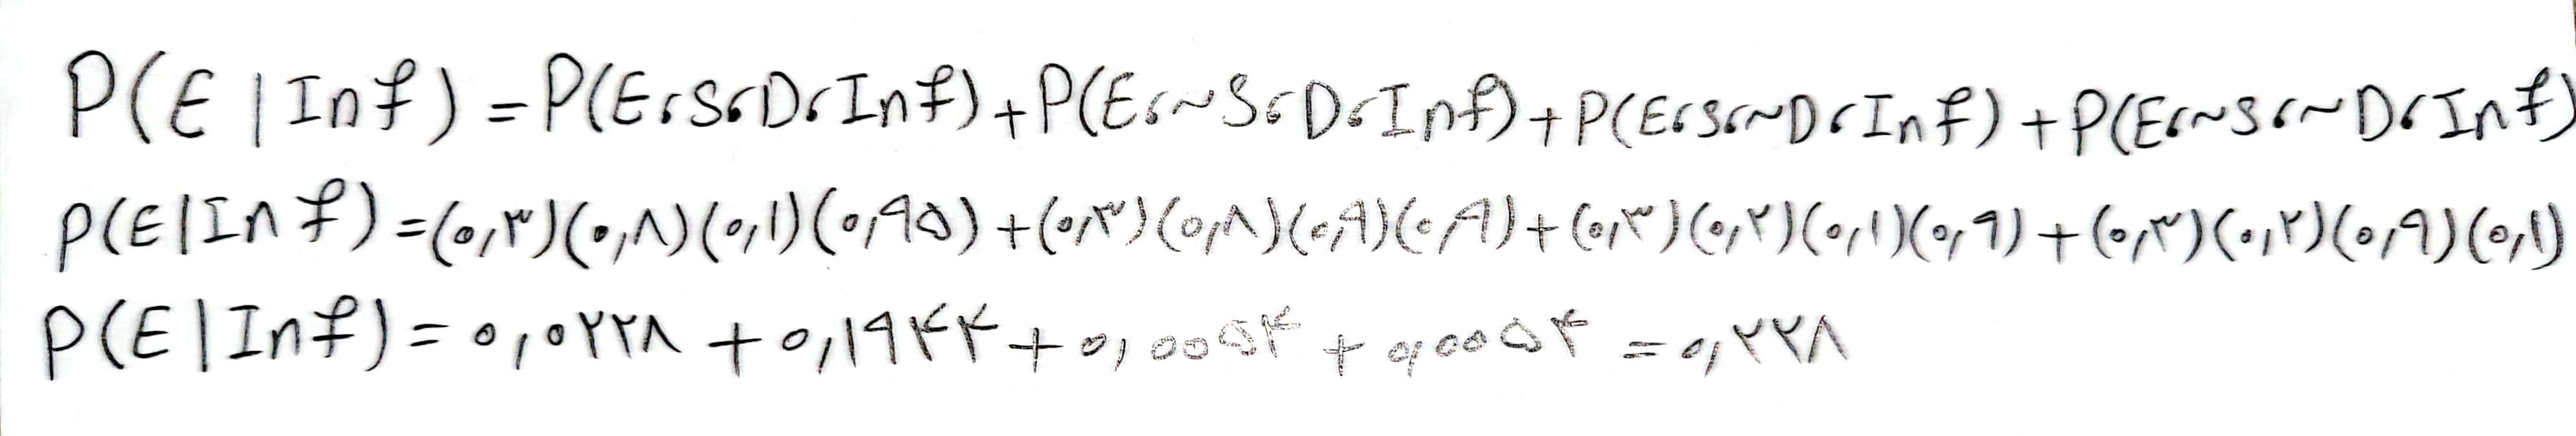 P(E | Inf) = P(E،S،D،Inf) + P(E،~S،D،Inf) + P(E،S،~D،Inf) + P(E،~S،~D،Inf)
P(E|Inf) = (۰,۳)(۰,۸)(۰,۱)(۰,۹۵) + (۰,۳)(۰,۸)(۰,۹)(۰,۹) + (۰,۳)(۰,۲)(۰,۱)(۰,۹) + (۰,۳)(۰,۲)(۰,۹)(۰,۱)
P(E|Inf) = ۰,۰۲۲۸ + ۰,۱۹۴۴ + ۰,۰۰۵۴ + ۰,۰۰۵۴ = ۰,۲۲۸